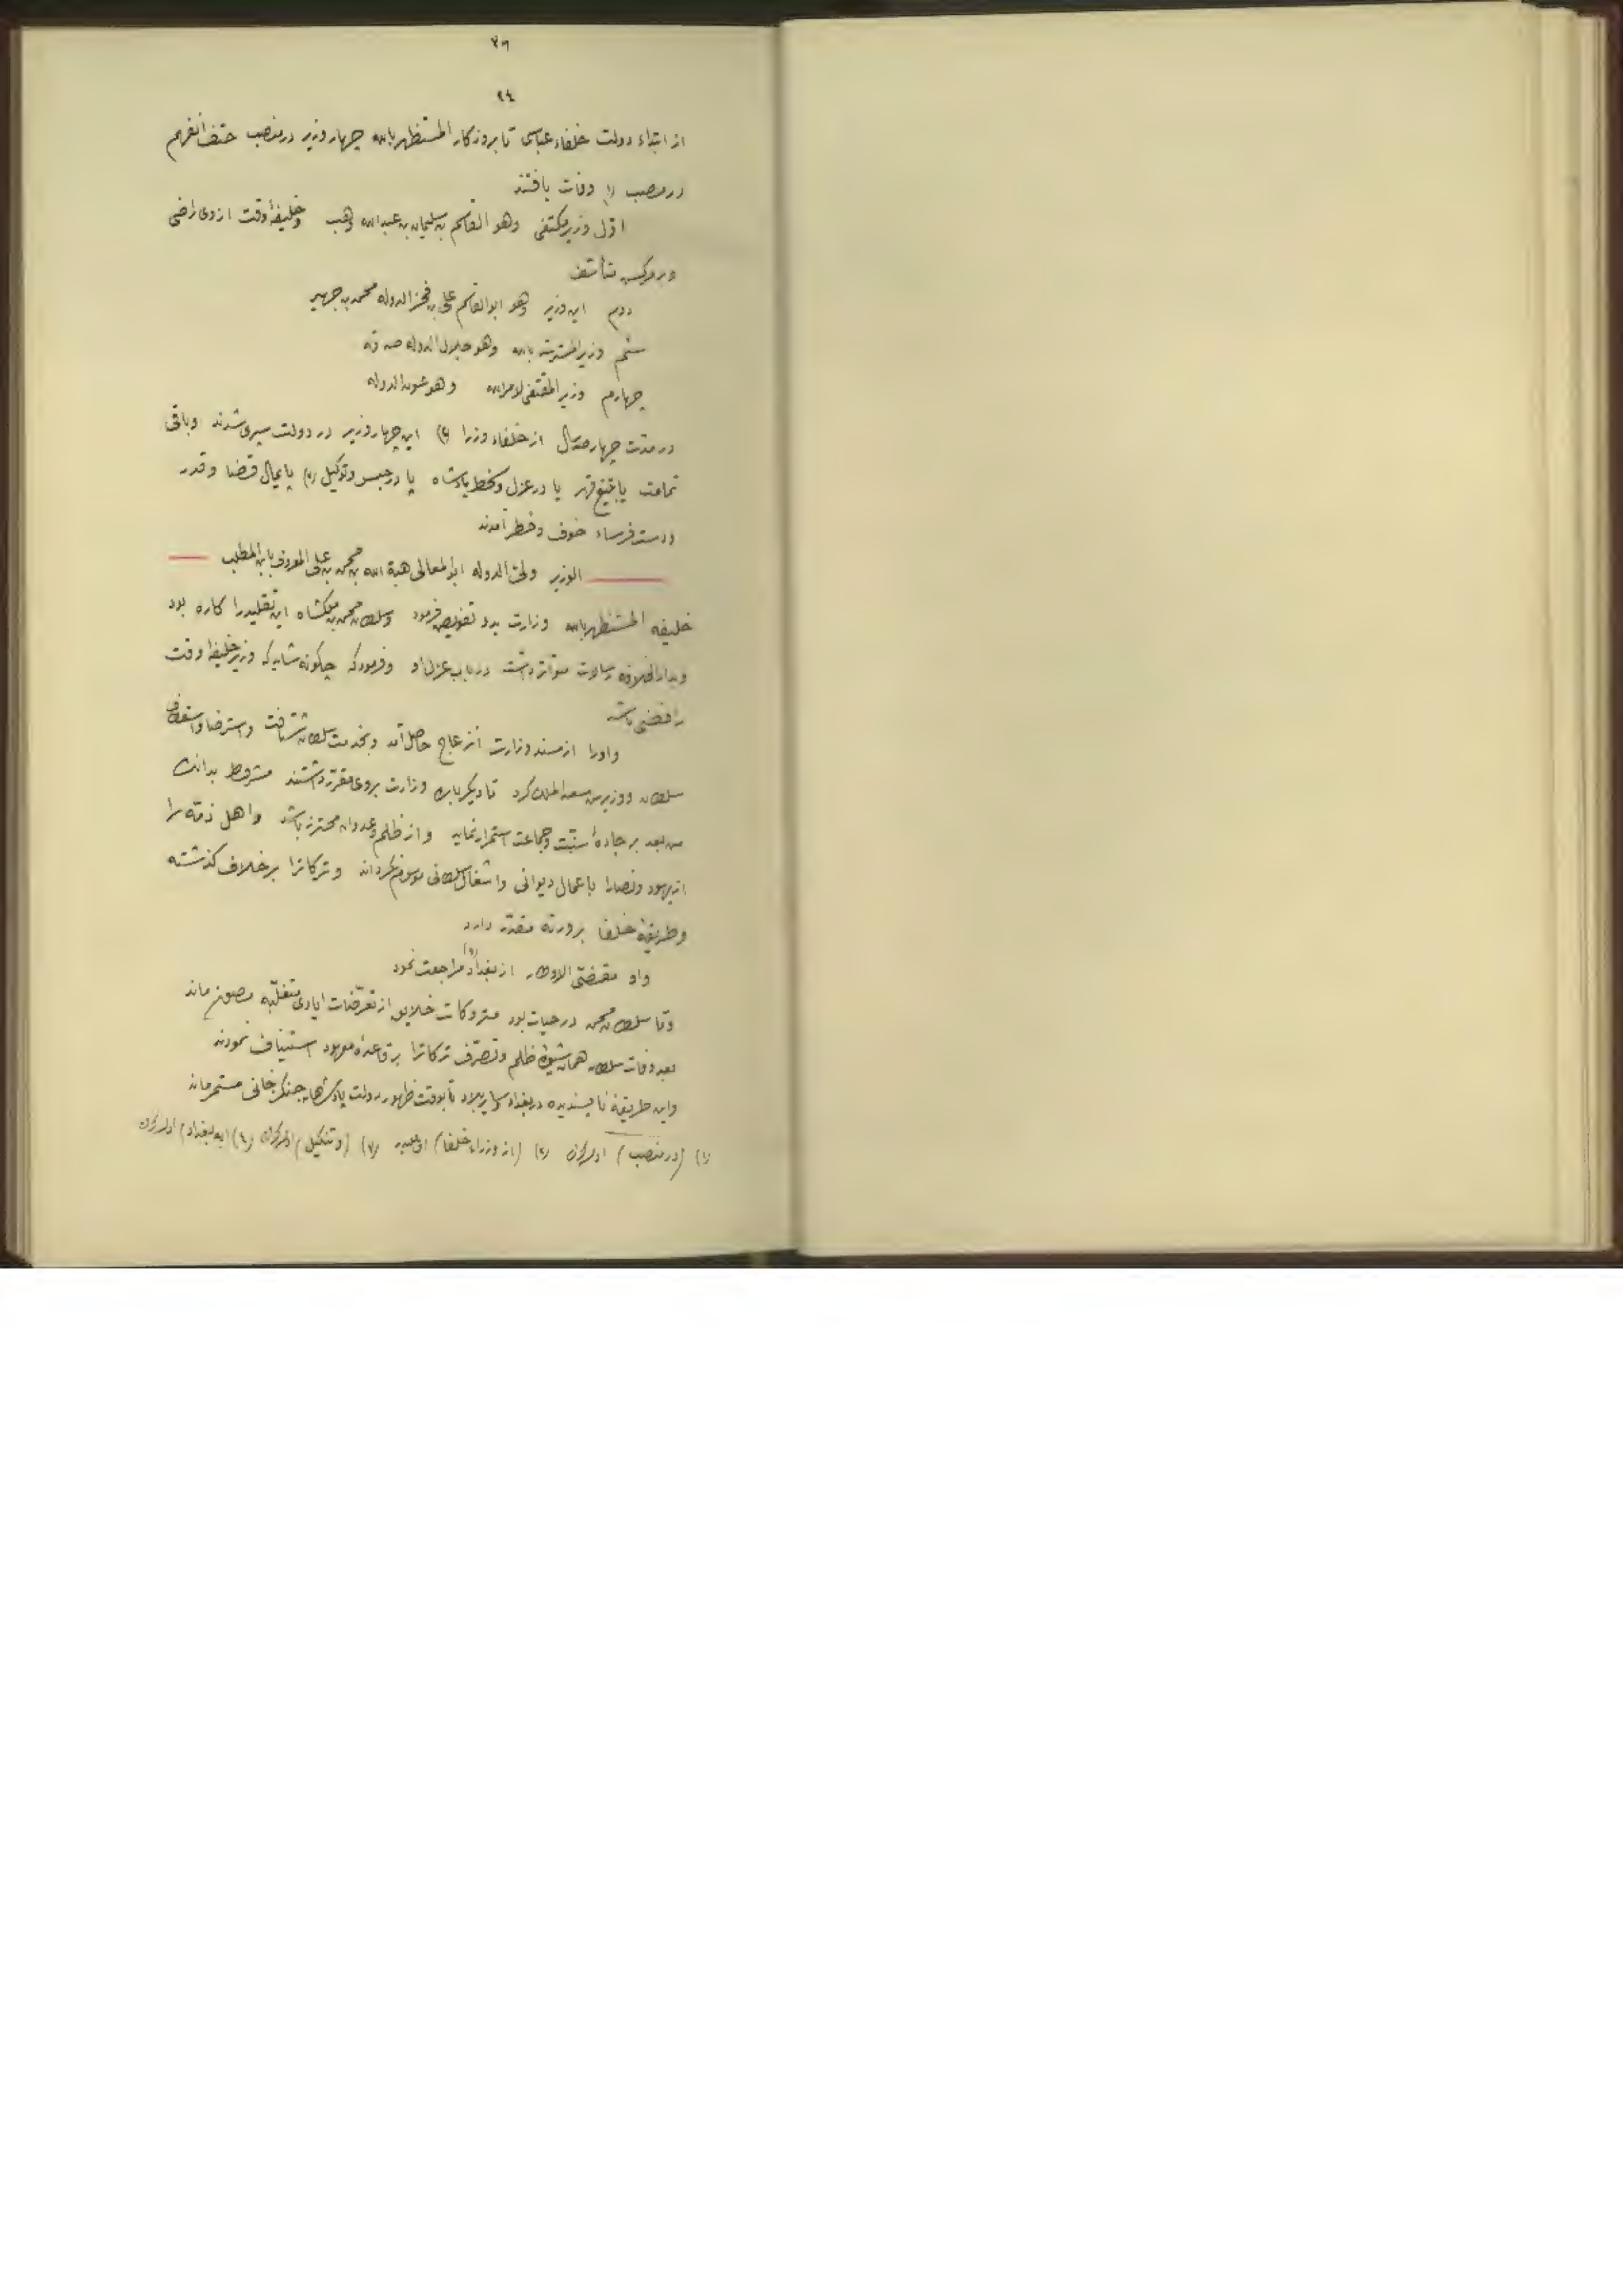 ٣٦
٩٤
از ابتداء دولت خلفاء عباسی تا بروزکار المستظهر بالله چهار وزیر در منصب حتف انفهم
در منصب (١) وفات یافتند
اوّل وزیر مکتفی وهو القاسم بن سلیمان بن عبدالله وهب وخلیفهٔ وقت از وی راضی
ودر مرکش متأسّف
دوم این وزیر وهو ابوالقاسم علی بن فخرالدوله محمد بن جهیر
سیم وزیر المسترشد بالله وهو جلال الدوله صدقه
چهارم وزیر المقتفی لامرالله وهو عون الدوله
در مدّت چهار صد سال از خلفاء وزرا (٢) این چهار وزیر در دولت سپری شدند وباقی
تمامت یا بتیغ قهر یا در عزل وسخط پادشاه یا در حبس وتوکیل (٣) پایمال قضا وقدر
ودست فرساء خوف وخطر آمدند
الوزیر ولیّ الدوله ابوالمعالی هبة الله بن محمد بن علی المعروف بابن المطلب
خلیفه المستظهر بالله وزارت بدو تفویض فرمود وسلطان محمد بن ملکشاه این تقلید را کاره بود
وبدار الخلافه رسالات متواتر داشت در باب عزل او وفرمود که چکونه شاید که وزیر خلیفهٔ وقت
رافضی باشد
واورا از مسند وزارت انزعاج حاصل آمد وبخدمت سلطان شتافت واسترضا واستعطاف
سلطان ووزیرش سعد الملک کرد تا دیکر باره وزارت بروی مقرّر داشتند مشروط بدانک
من بعد بر جادهٔ سنّت وجماعت استمرار نماید واز ظلم وعدوان محترز باشد واهل ذمّه را
از یهود ونصارا باعمال دیوانی واشغال سلطانی موسوم نکرداند وترکاترا بر خلاف کذشته
وطریقهٔ خلفا بر ورثه مقرّر دارد
واو مقضیّ الاوطار از بغداد (٤) مراجعت نمود
وتا سلطان محمد در حیات بود متروکات خلایق از تعرّضات ایادی متغلّبه مصون ماند
بعد وفات سلطان همان شیوهٔ ظلم وتصرّف ترکاترا بر قاعدهٔ معهود استیناف نمودند
واین طریقهٔ ناپسندیده در بغداد وسایر بلاد تا بوقت ظهور دولت پادشاهان جنکزخانی مستمر ماند
(١) (در منصب) (٢) (از وزراء خلفا) (٣) (وتنکیل) (٤) (بغداد)